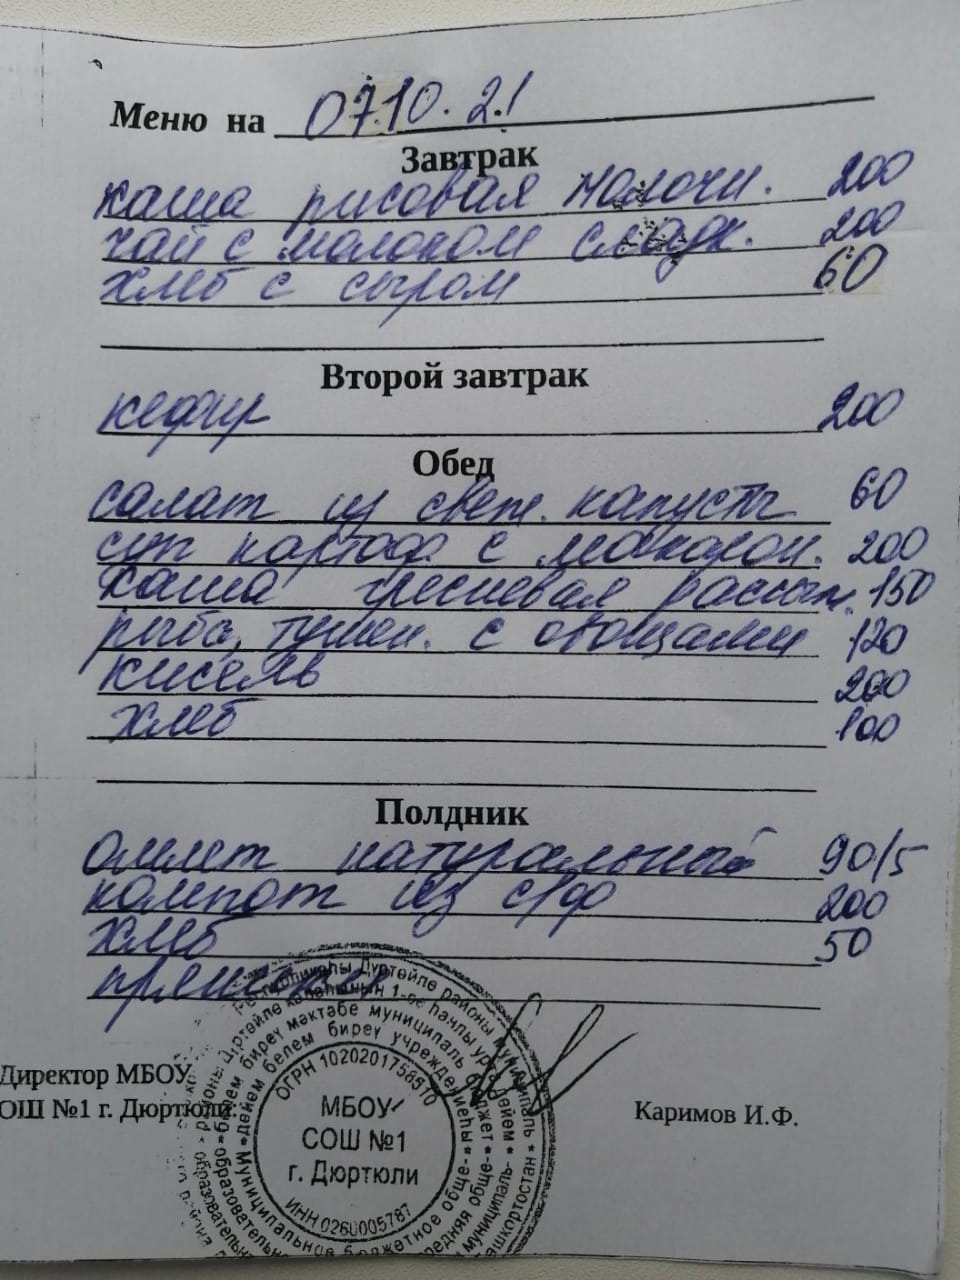 Меню на 07.10.21
Завтрак
каша рисовая молочн. 200
чай с молоком сладк. 200
хлеб с сыром 60
Второй завтрак
кефир 200
Обед
салат из свеж. капусты 60
суп картоф. с макарон. 200
каша гречневая рассып. 150
рыба, тушен. с овощами 120
кисель 200
хлеб 100
Полдник
Омлет натуральный 90/5
компот из с/ф 200
хлеб 50
пряники
Директор МБОУ
ОШ №1 г. Дюртюли:
Каримов И.Ф.
ОГРН 1020201758510
МБОУ
СОШ №1
г. Дюртюли
ИНН 0260005787